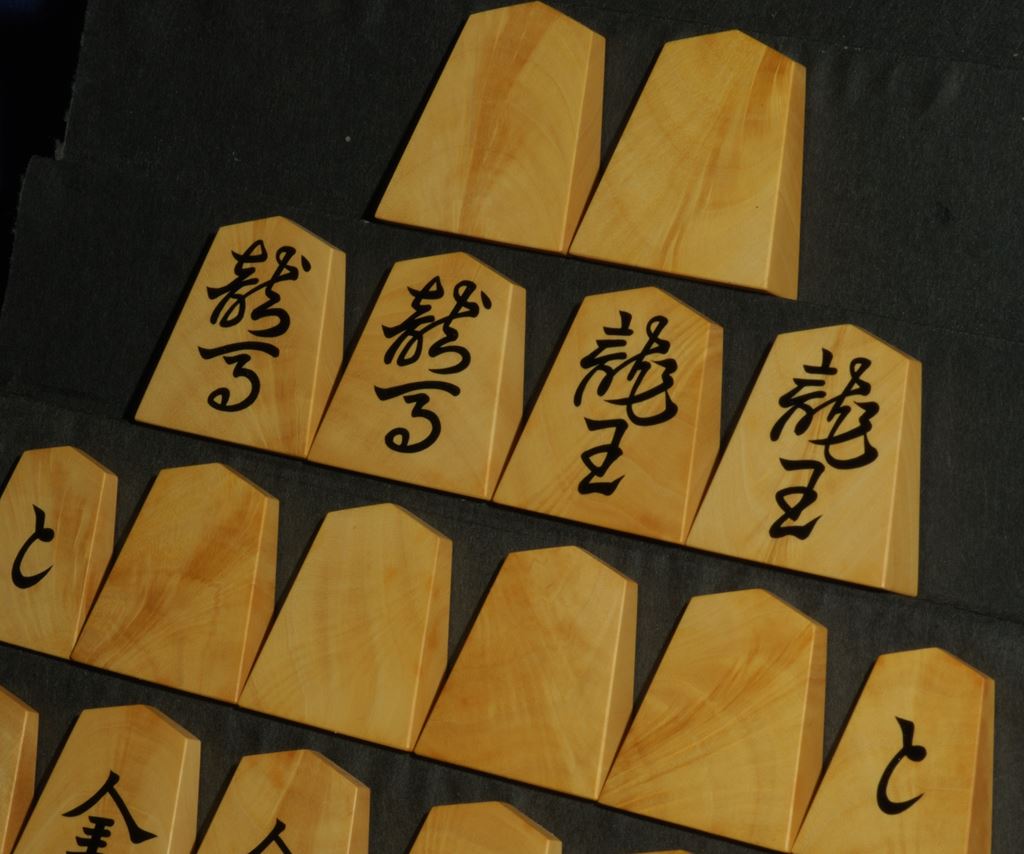 龍馬
龍馬
龍王
龍王
と
と
全